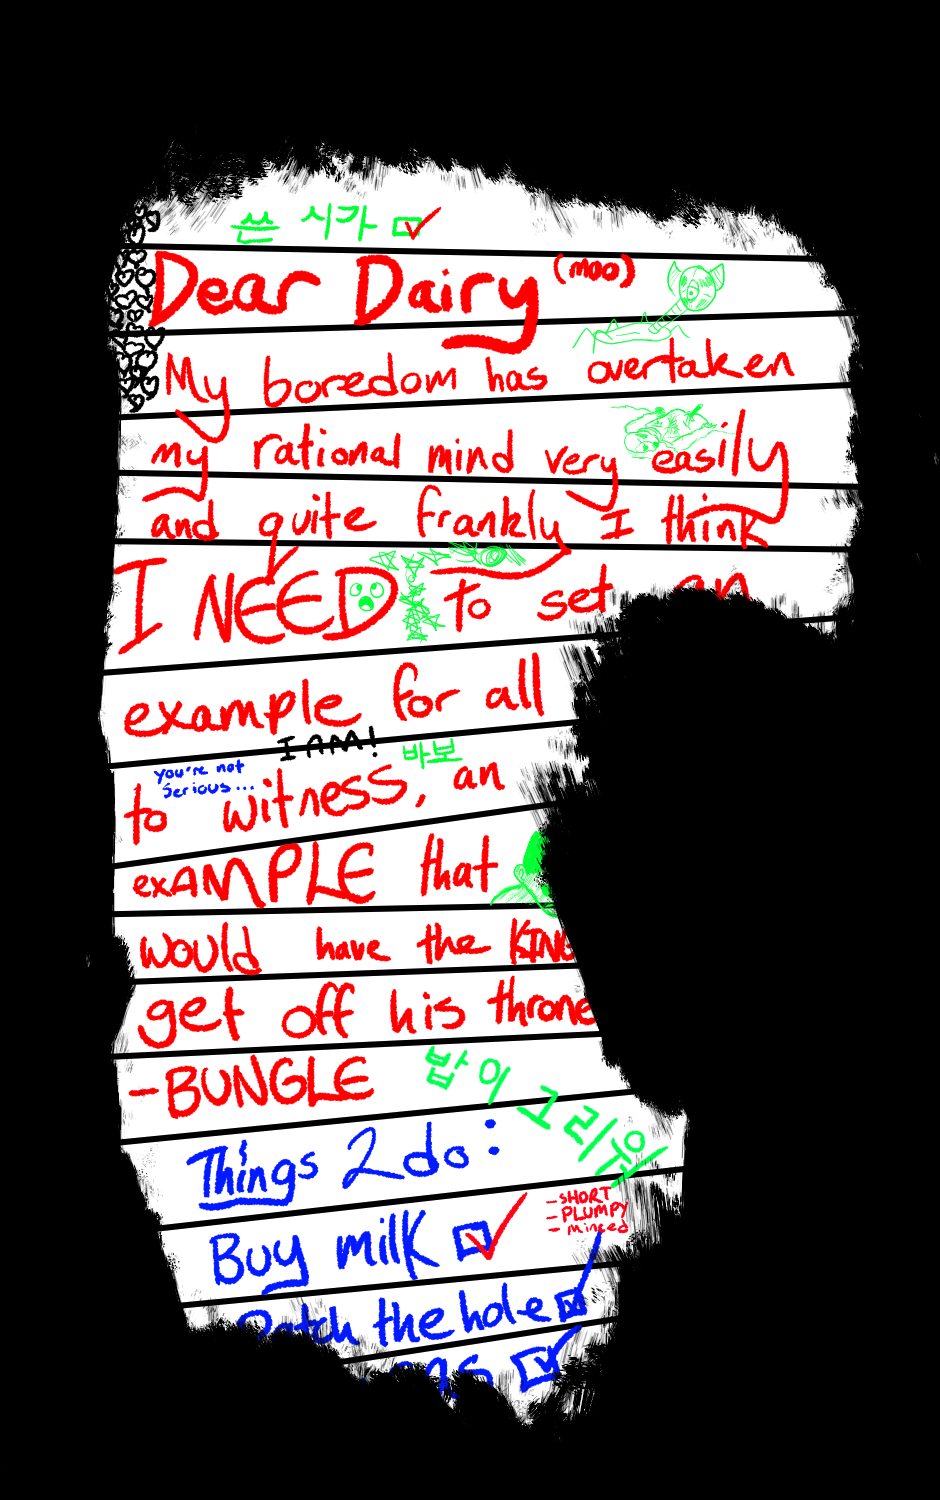 쓴 시가
Dear Dairy (moo)
My boredom has overtaken
my rational mind very easily
and quite frankly I think
I NEED to set an
example for all
I AM!
바보
you're not
serious...
to witness, an
exAMPLE that
would have the KING
get off his throne
-BUNGLE
밥이 그리워
Things 2 do:
Buy milk
- SHORT
- PLUMPY
- minced
the hole